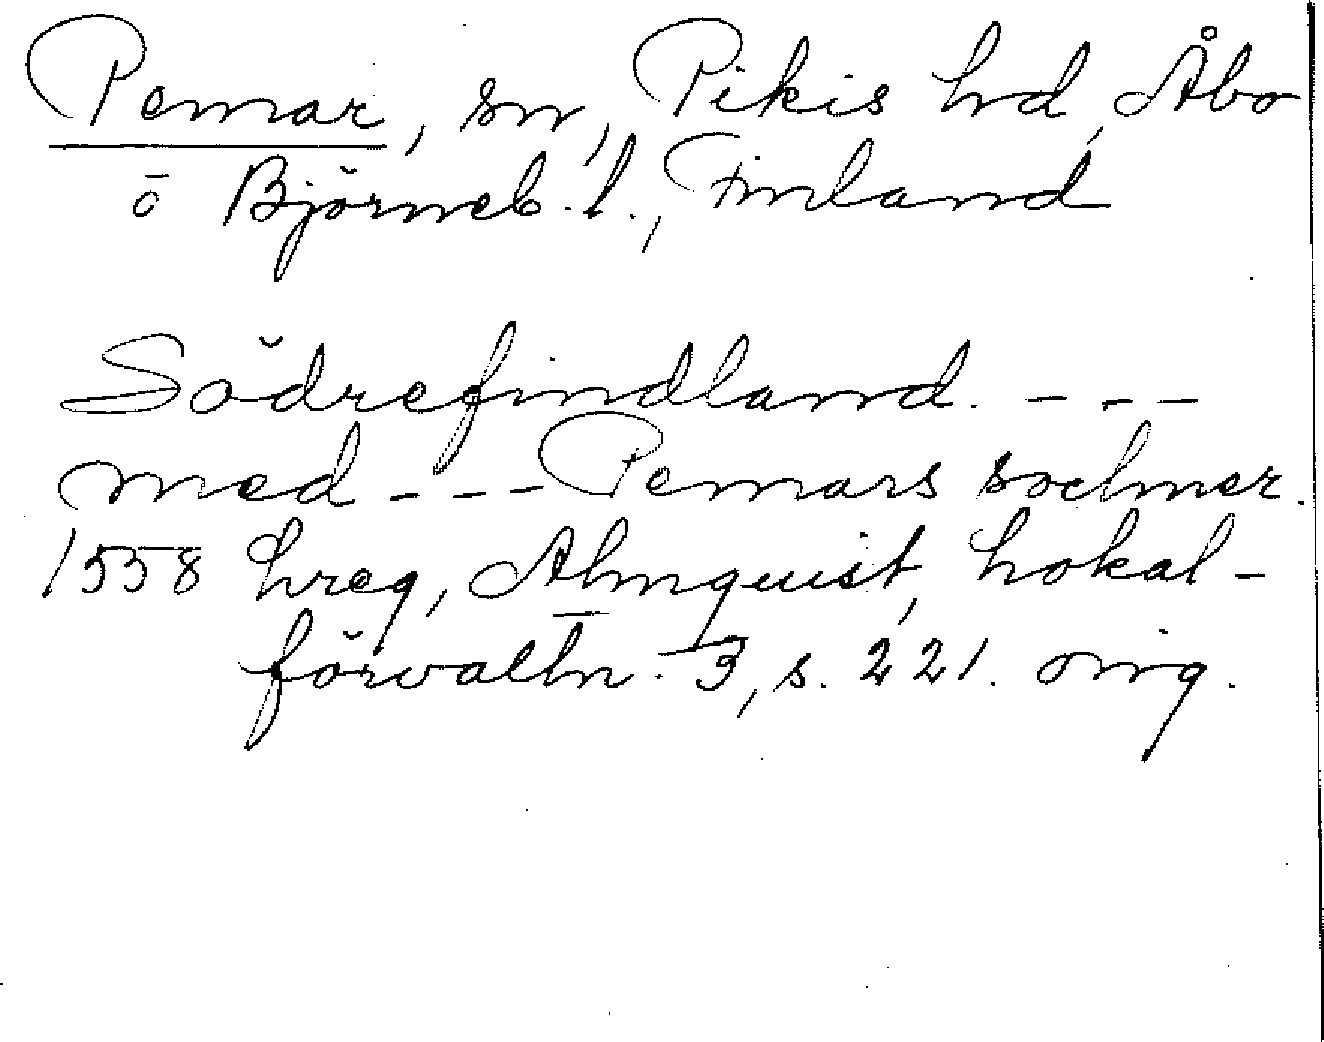 Pemar, sn, Pikis hd, Åbo
ō Björneb. l., Finland
Södrefindland. - - -
med - - - Pemars sochner.
1558 hreg, Almquist, Lokal-
förvaltn. 3, s. 221. orig.